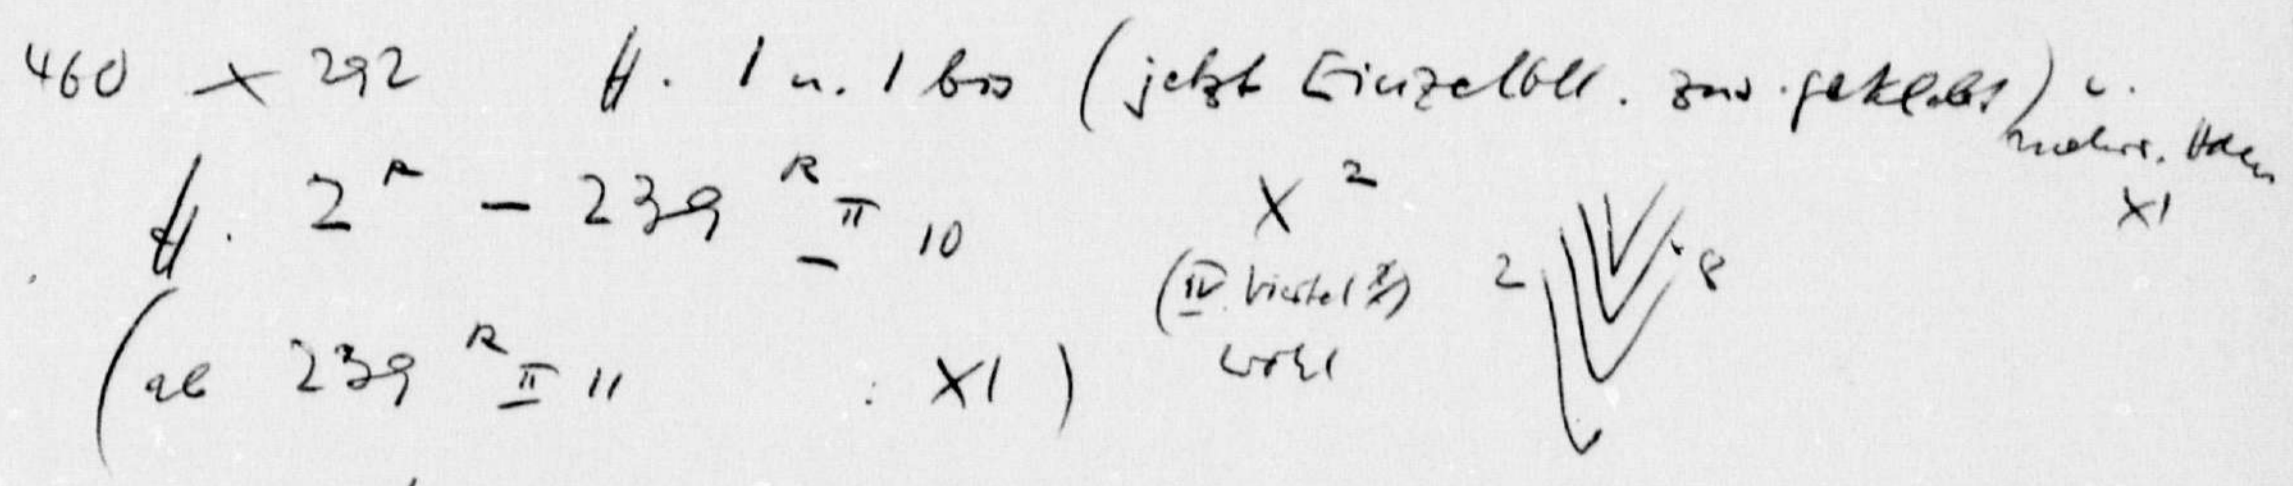 460 × 292 ff. 1 u. 1 bis (jetzt Einzelbll. zus. geklebt) u.
mehrr. Hde
XI
ff. 2ᴿ – 239ᴿ II 10 X² 2 8
(IV. Viertel X)
wohl
(ab 239ᴿ II 11 : XI)